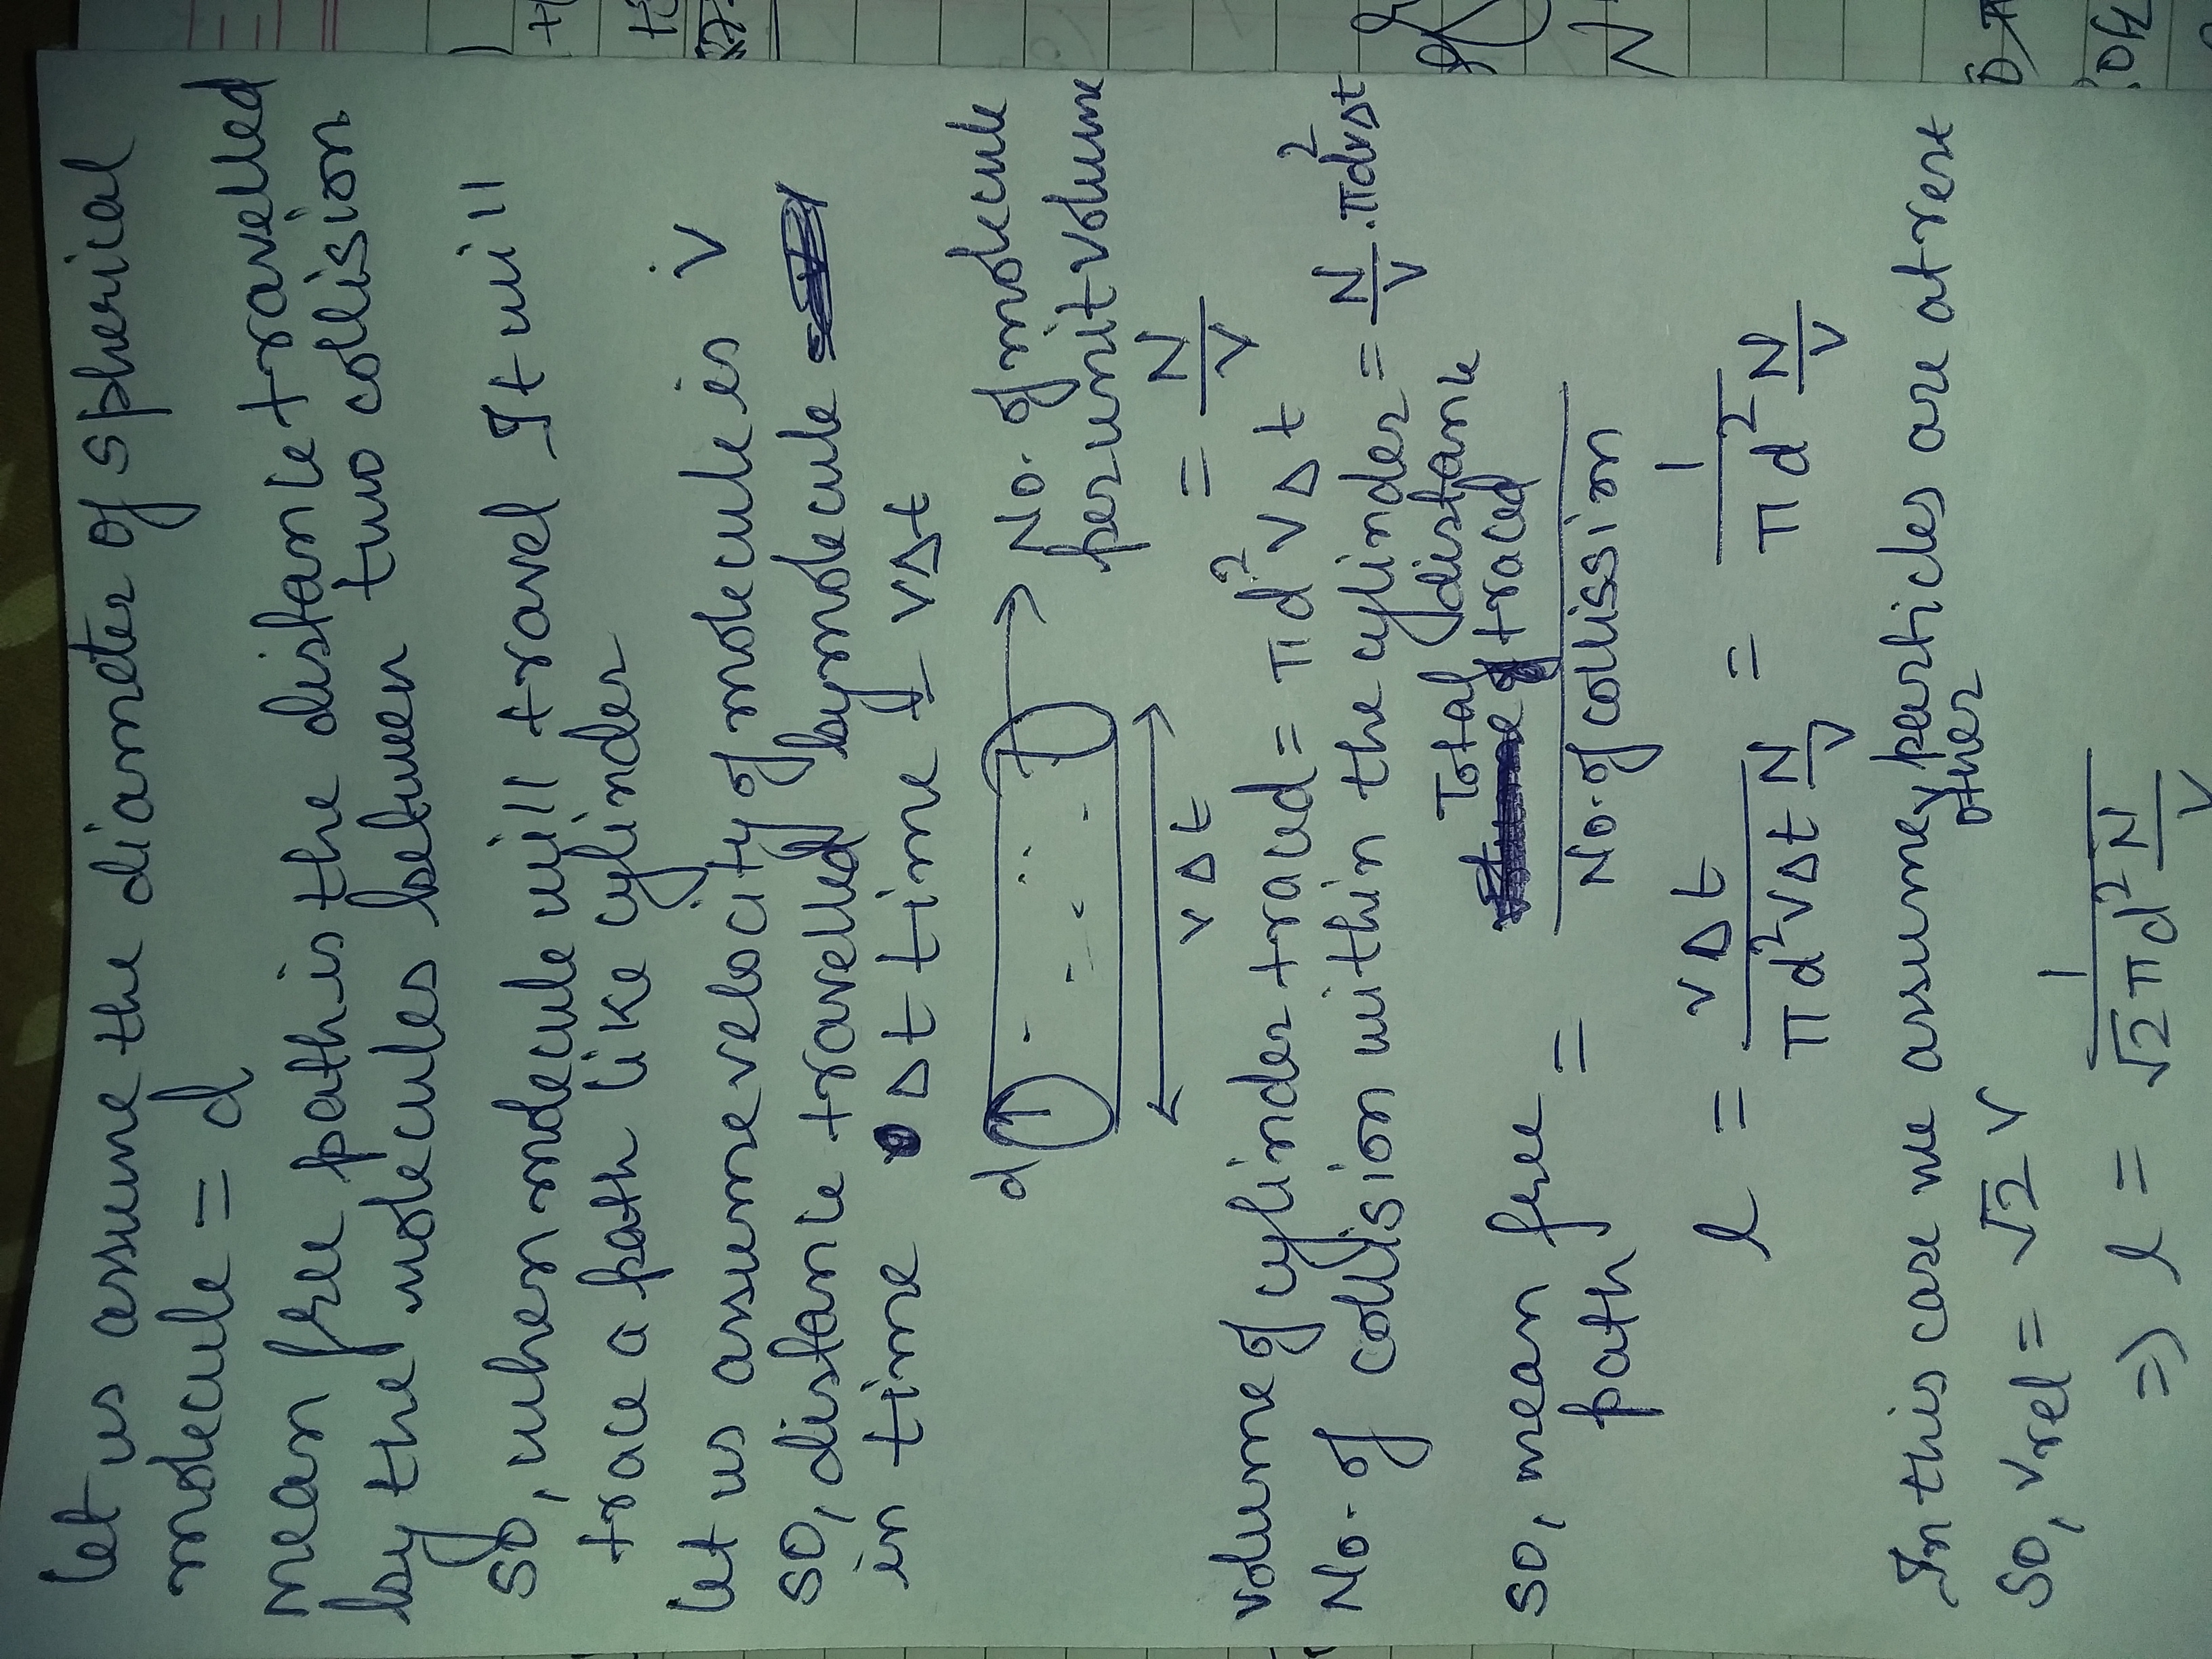 Let us assume the diameter of spherical
molecule = d
mean free path is the distance travelled
by the molecules between two collision
so, when molecule will travel It will
trace a path like cylinder
Let us assume velocity of molecule is V
so, distance travelled by molecule
in time Δt time
vΔt
d
No. of molecule
per unit volume
= N/V
vΔt
volume of cylinder traced = πd²vΔt
No. of collision within the cylinder = N/V . πd²vΔt
so, mean free path = Total distance traced / No. of collission
l = vΔt / πd²vΔt N/V = 1 / πd² N/V
In this case we assume other particles are at rest
so, vrel = √2 v
⇒ l = 1 / √2 πd² N/V